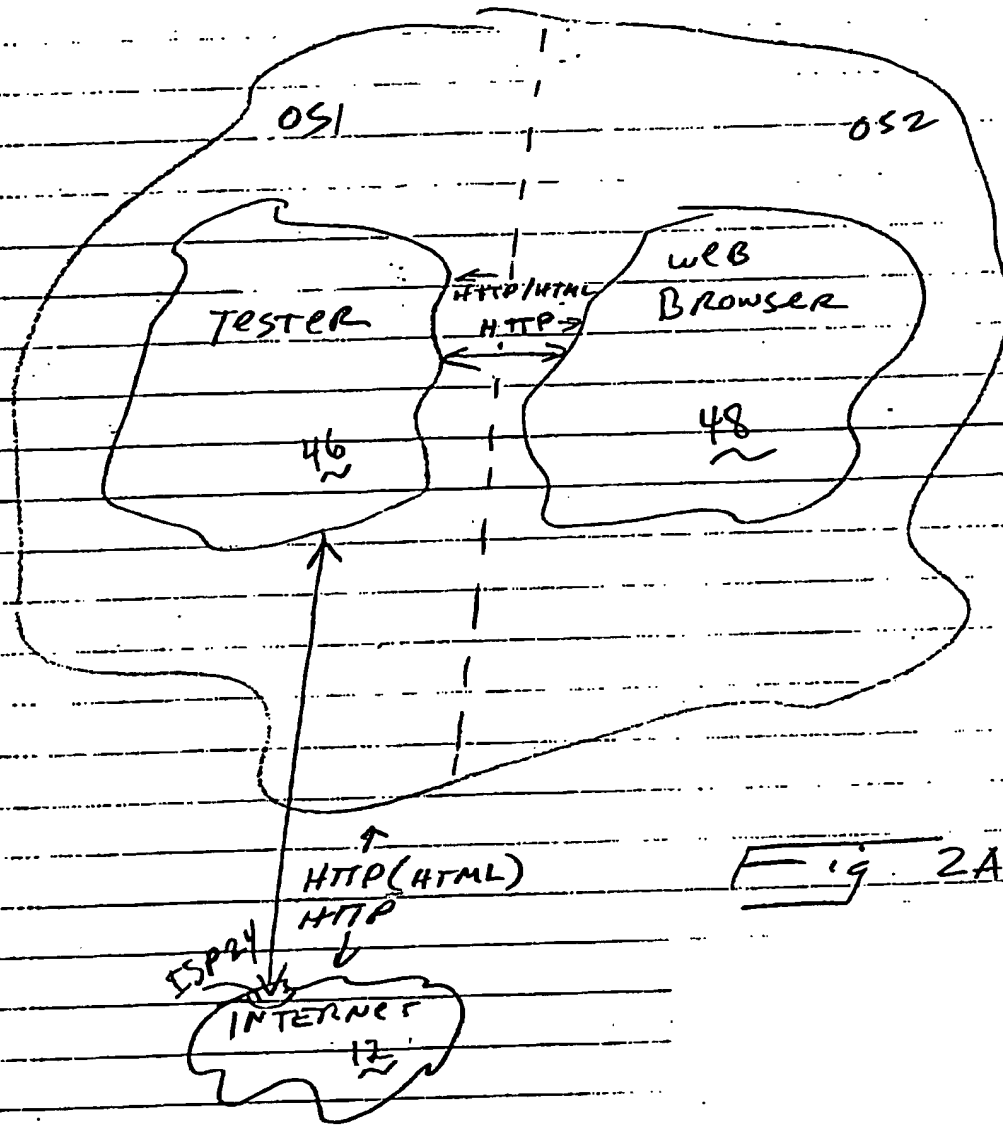 OS1
OS2
TESTER
46
HTTP/HTML
HTTP
WEB
BROWSER
48
HTTP(HTML)
HTTP
ISP24
INTERNET
12
Fig. 2A